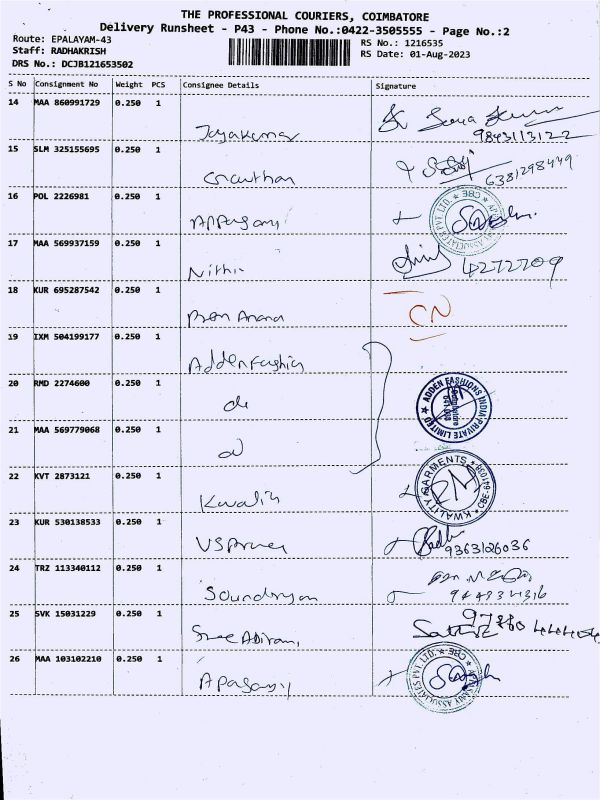 THE PROFESSIONAL COURIERS, COIMBATORE
Delivery Runsheet - P43 - Phone No.:0422-3505555 - Page No.:2
Route: EPALAYAM-43
RS No.: 1216535
Staff: RADHAKRISH
RS Date: 01-Aug-2023
DRS No.: DCJB121653502
S No Consignment No Weight PCS Consignee Details Signature
14 MAA 860991729 0.250 1 Jayakumar
9843113122
15 SLM 325155695 0.250 1 Gowthan
6381298449
16 POL 2226981 0.250 1
17 MAA 569937159 0.250 1 Nithi
4272709
18 KUR 695287542 0.250 1 CN
19 IXM 504199177 0.250 1 Adden Fashion
20 RMD 2274600 0.250 1 do
ADDEN FASHIONS INDIA PRIVATE LIMITED
21 MAA 569779068 0.250 1
22 KVT 2873121 0.250 1
KWALITY GARMENTS
23 KUR 530138533 0.250 1
9363126036
24 TRZ 113340112 0.250 1
25 SVK 15031229 0.250 1 Sree Abirami
26 MAA 103102210 0.250 1